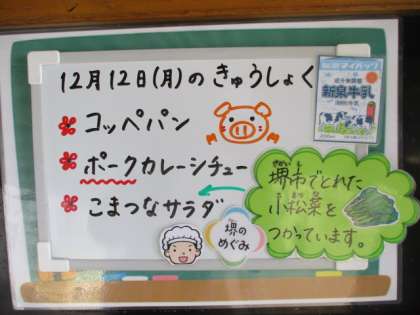 12月12日(月)の きゅうしょく
コッペパン
ポークカレーシチュー
こまつなサラダ
新泉牛乳
堺市でとれた
小松菜を
つかっています。
堺の
めぐみ